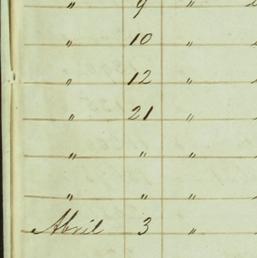 " 9 "
" 10 "
" 12 "
" 21 "
" " "
" " "
Abril 3 "